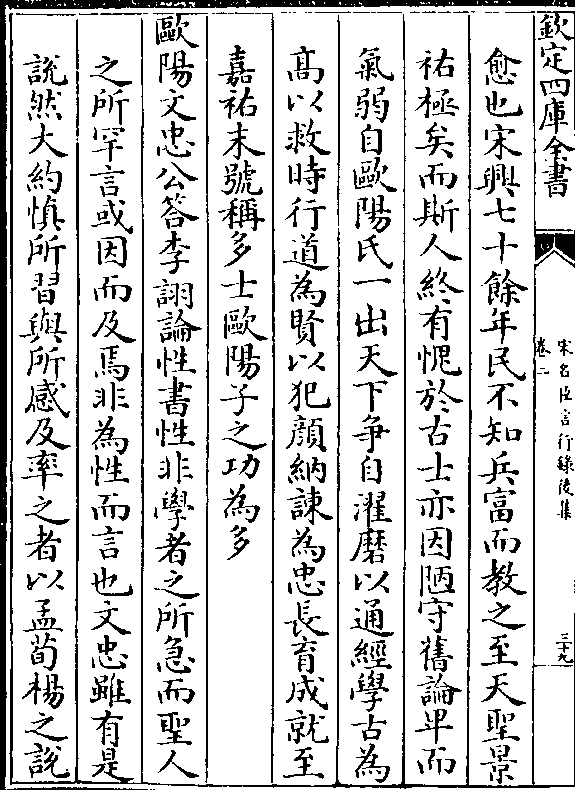 欽定四庫全書
宋名臣言行錄後集
卷二
三十九
愈也宋興七十餘年民不知兵富而教之至天聖景
祐極矣而斯人終有愧於古士亦因陋守舊論卑而
氣弱自歐陽氏一出天下爭自濯磨以通經學古為
髙以救時行道為賢以犯顔納諫為忠長育成就至
嘉祐末號稱多士歐陽子之功為多
歐陽文忠公答李詡論性書性非學者之所急而聖人
之所罕言或因而及焉非為性而言也文忠雖有是
説然大約慎所習與所感及率之者以孟荀楊之説